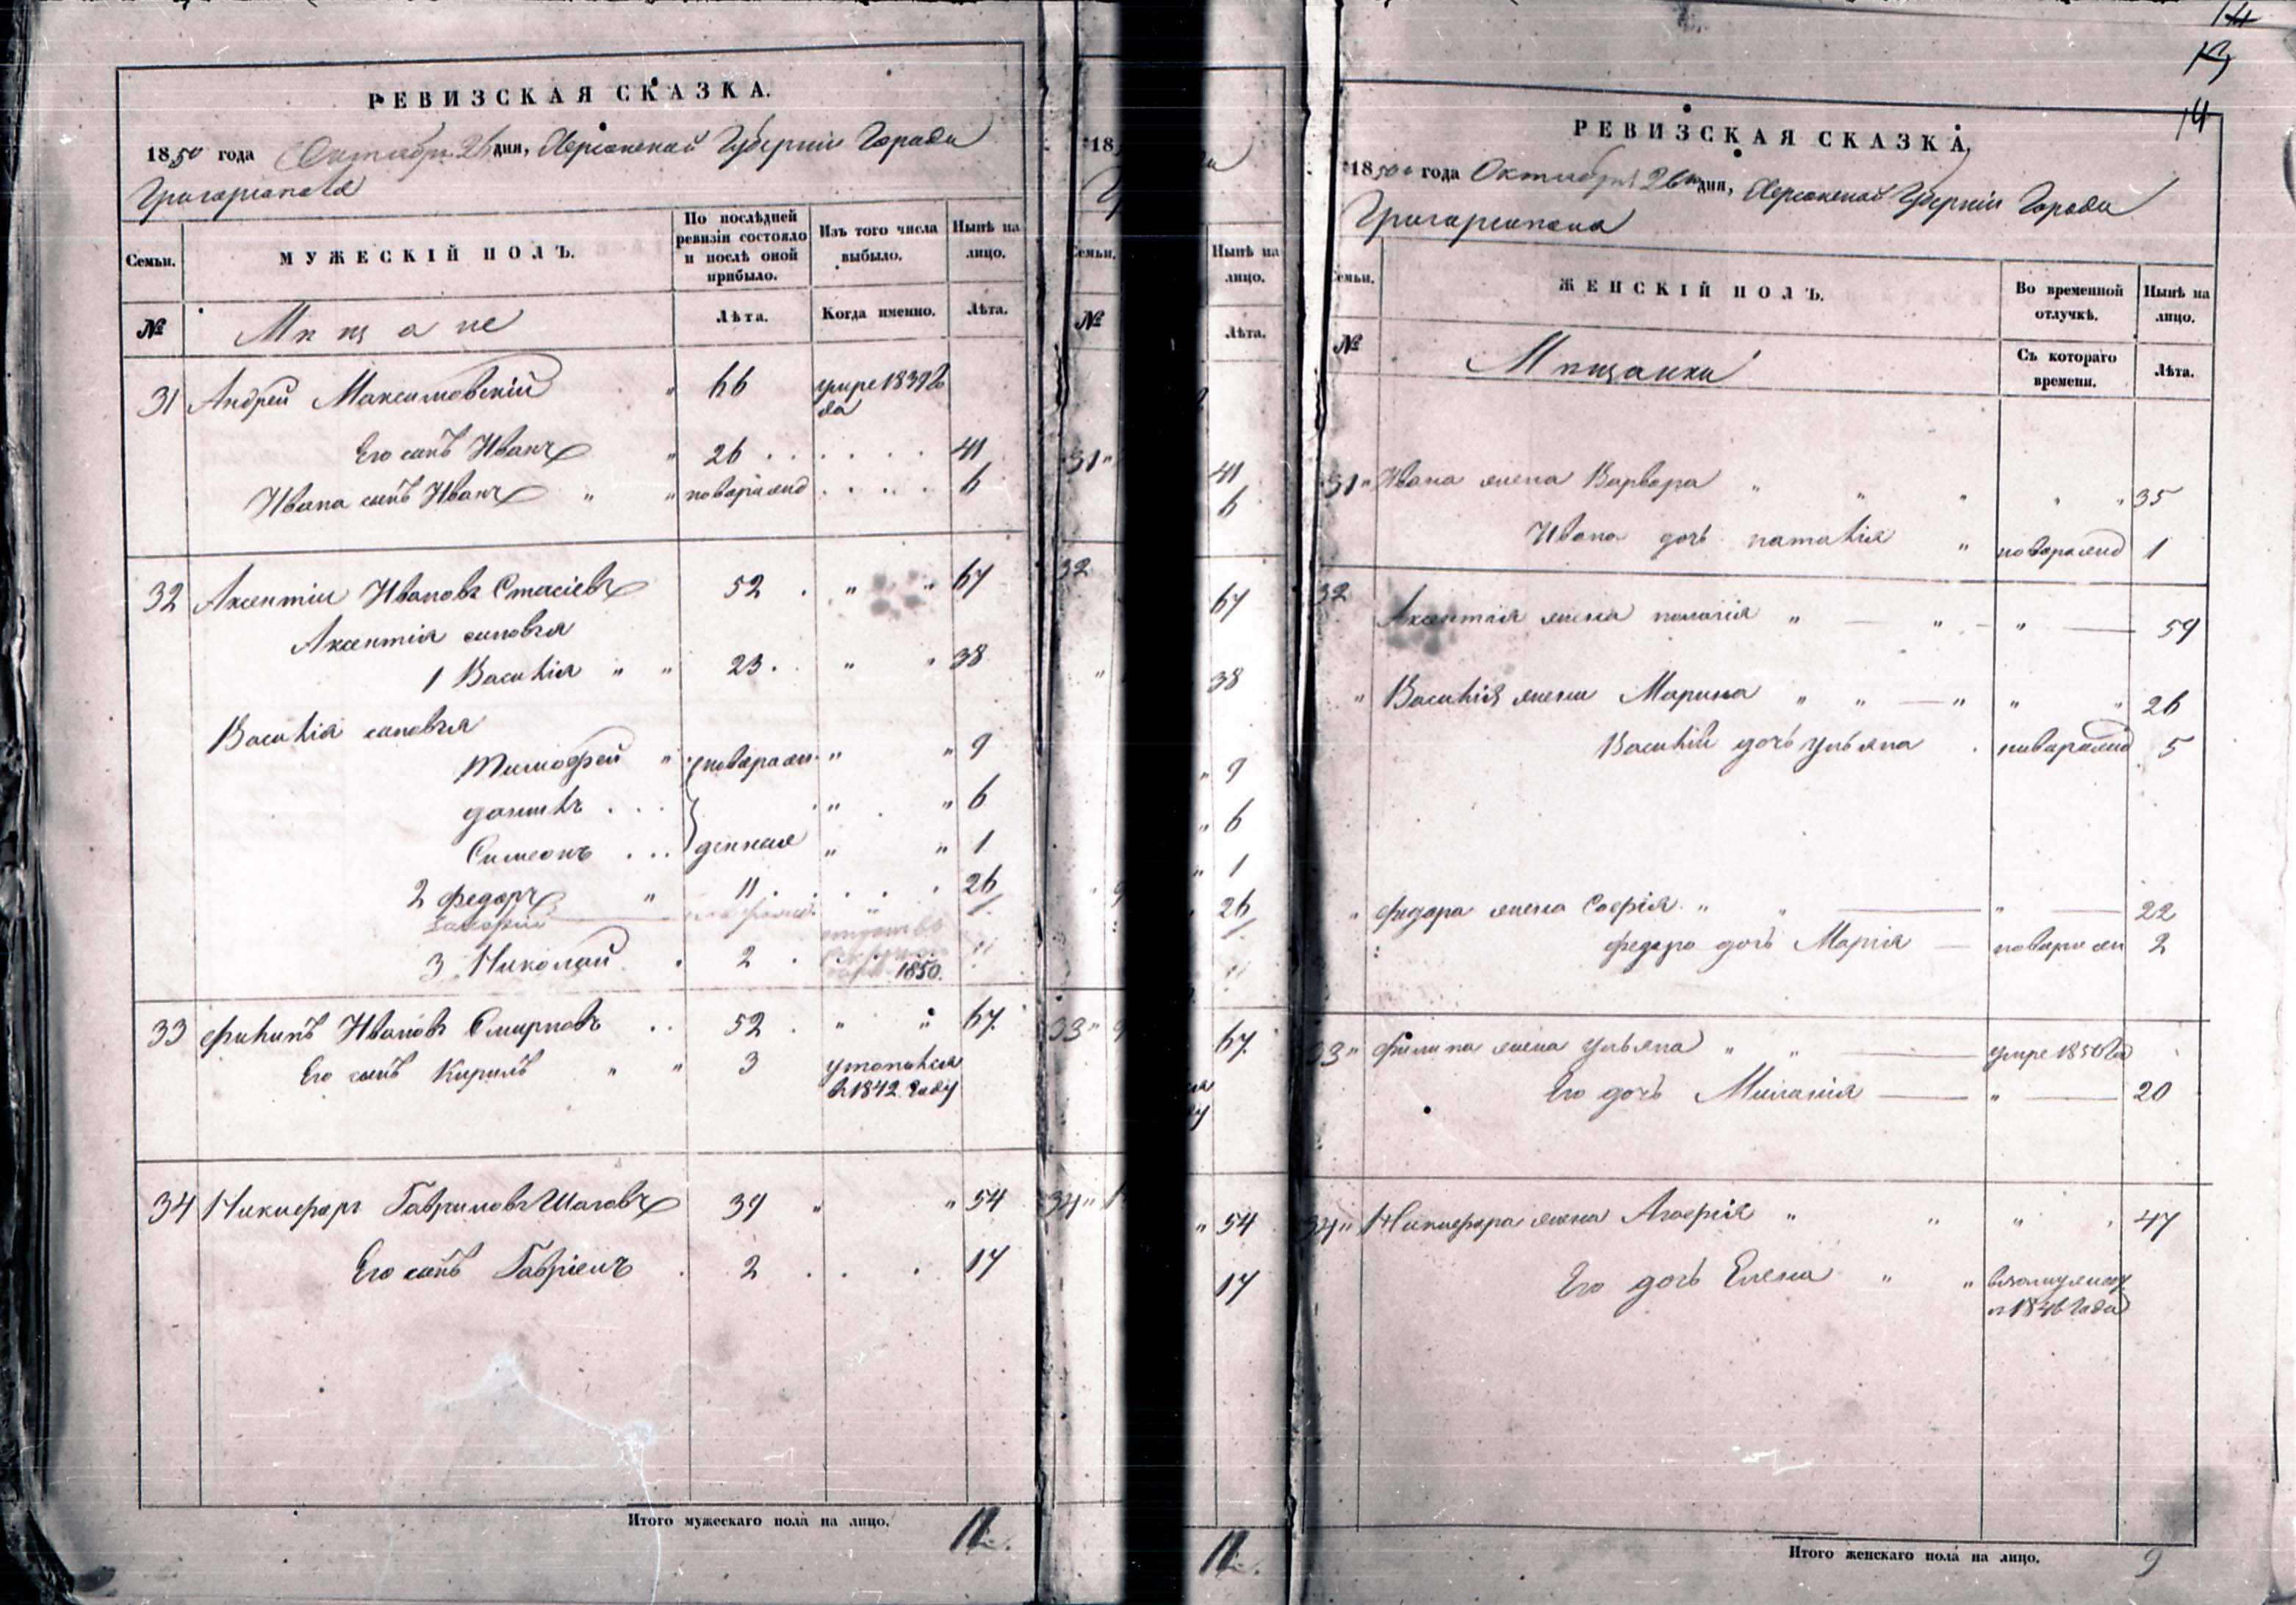 РЕВИЗСКАЯ СКАЗКА.
1850 года Октября 26 дня, Херсонской Губернии Города
Григориополя
Семьи. МУЖЕСКІЙ ПОЛЪ. По послѣдней ревизіи состояло и послѣ оной прибыло. Изъ того числа выбыло. Нынѣ на лицо.
№ Мѣщане Лѣта. Когда именно. Лѣта.
31 Андрей Максимовскій " 66 умре 1839 го
да
Его сынъ Иванъ " 26 . . . . . . 41
Ивана сынъ Иванъ " " новорожд . . . . 6
32 Аксентій Ивановъ Стасіевъ 52 . " " 67
Аксентія сыновья
1 Василій " " 23 . . " " 38
Василія сыновья
Тимофей " новорож " " 9
Данилъ . . . " . " 6
Симеонъ . . . денные " " 1
2 Федоръ " 11 . . . . . 26
Захарій
3 Николай . 2 . . . 1850.
33 Филипъ Ивановъ Смирновъ . . 52 . " " 67
Его сынъ Кирилъ " " 3 утопился
в 1842 году
34 Никифоръ Гавриловъ Шаговъ 39 " " 54
Его сынъ Гавріилъ . 2 . . . 17
Итого мужескаго пола на лицо. 11
18
Семьи. Нынѣ на лицо.
№ Лѣта.
31 " 41
6
32 67
" 38
" 9
" 6
" 1
26
33 " 67
34 " " 54
17
11
14
14
РЕВИЗСКАЯ СКАЗКА.
1850 года Октября 26 дня, Херсонской Губерніи Города
Григориополя
Семьи. ЖЕНСКІЙ ПОЛЪ. Во временной отлучкѣ. Нынѣ на лицо.
№ Мѣщанки Съ котораго времени. Лѣта.
31 " Ивана жена Варвара " " " " " 35
Ивана дочь Наталія " новорожд 1
32 Аксентія жена Пелагія " " " 59
" Василія жена Марина " " " " " 26
Василія дочь Ульяна . новорожд 5
" Федора жена Софія " " " 22
Федора дочь Марія новорож 2
33 " Филипа жена Ульяна " " умре 1850 го
Его дочь Миланія " 20
34 " Никифора жена Агафія " " " . 47
Его дочь Елена " "
1846 года
Итого женскаго пола на лицо. 9